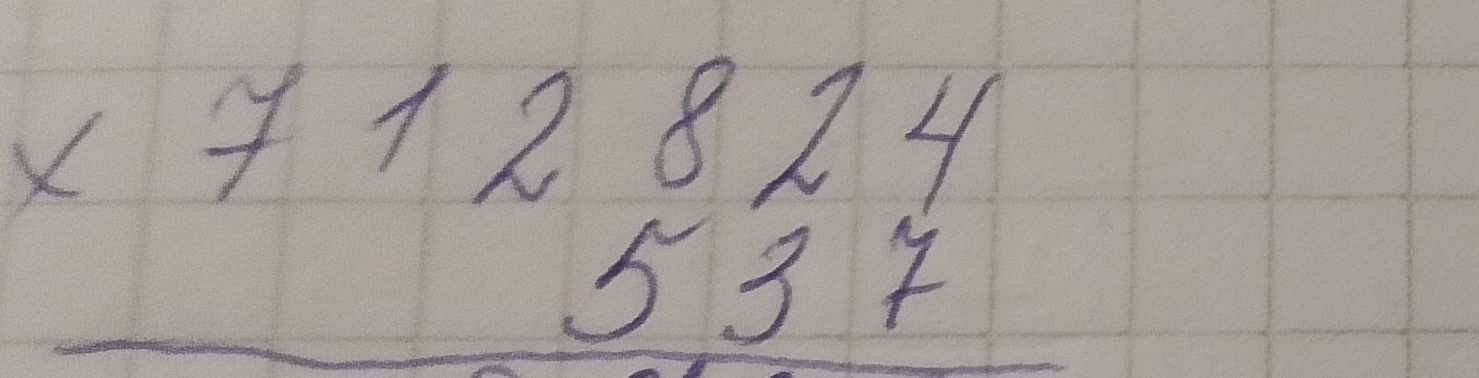 × 712824
537